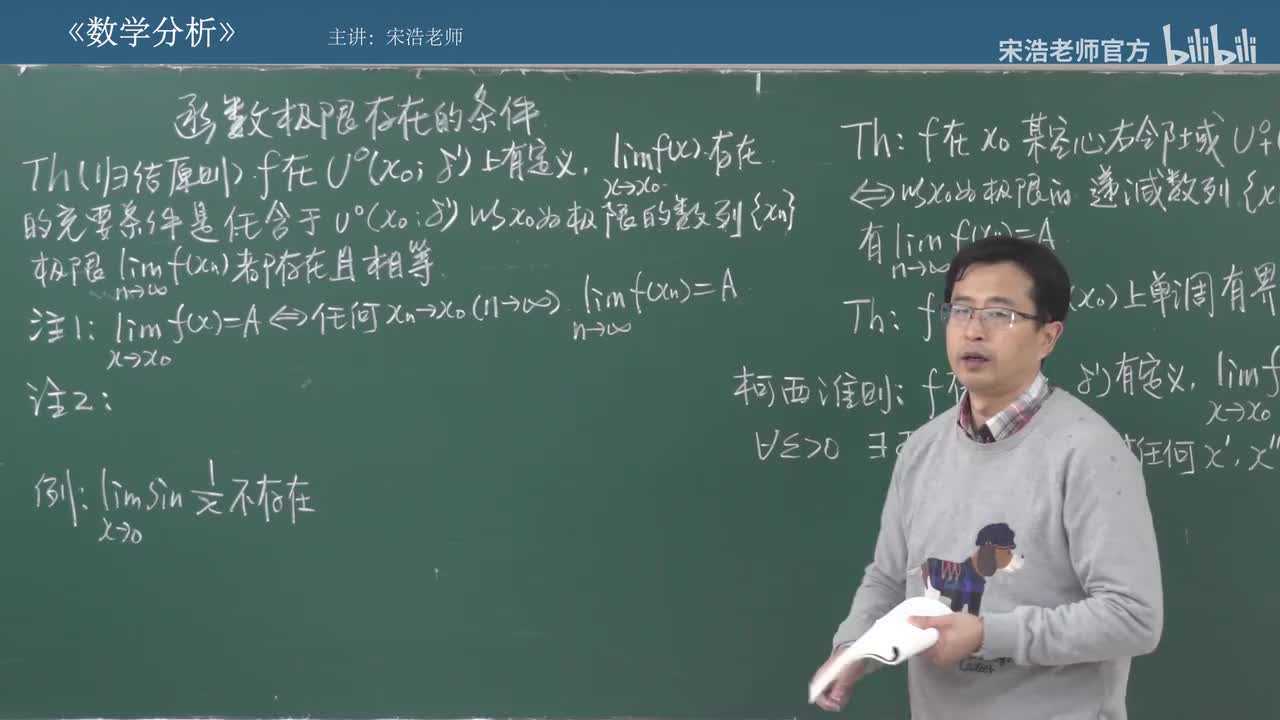 《数学分析》
主讲：宋浩老师
宋浩老师官方 bilibili
函数极限存在的条件
Th(归结原则) f在U°(x₀;δ')上有定义，lim f(x)存在
x→x₀
的充要条件是任含于U°(x₀;δ')以x₀为极限的数列{xn}
极限 lim f(xn)都存在且相等
n→∞
注1: lim f(x)=A⇔任何xn→x₀(n→∞) lim f(xn)=A
x→x₀ n→∞
注2:
例: lim sin 1/x 不存在
x→0
Th: f在x₀某空心右邻域U°+(
⇔以x₀为极限的递减数列{x
有 lim f(xn)=A
n→∞
Th: f (x₀)上单调有界
柯西准则: f在 δ')有定义，lim f
x→x₀
∀ε>0 ∃ 任何x',x''